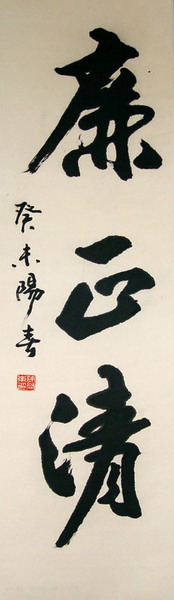 廉正清
癸未陽春